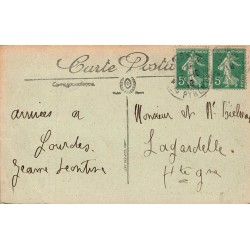 Carte Postale
Correspondance
arrivées a
Lourdes.
Jeanne Leontine
Monsieur et Mr
Lagardelle
Hte gne